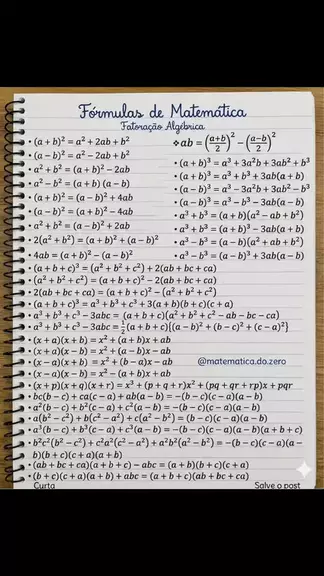 Fórmulas de Matemática
Fatoração Algébrica
• (a + b)² = a² + 2ab + b²
❖ab = ((a+b)/2)² − ((a−b)/2)²
• (a − b)² = a² − 2ab + b²
• a² + b² = (a + b)² − 2ab
• (a + b)³ = a³ + 3a²b + 3ab² + b³
• a² − b² = (a + b)(a − b)
• (a + b)³ = a³ + b³ + 3ab(a + b)
• (a + b)² = (a − b)² + 4ab
• (a − b)³ = a³ − 3a²b + 3ab² − b³
• (a − b)² = (a + b)² − 4ab
• (a − b)³ = a³ − b³ − 3ab(a − b)
• a² + b² = (a − b)² + 2ab
• a³ + b³ = (a + b)(a² − ab + b²)
• 2(a² + b²) = (a + b)² + (a − b)²
• a³ − b³ = (a − b)(a² + ab + b²)
• 4ab = (a + b)² − (a − b)²
• a³ − b³ = (a − b)³ + 3ab(a − b)
• (a + b + c)² = (a² + b² + c²) + 2(ab + bc + ca)
• (a² + b² + c²) = (a + b + c)² − 2(ab + bc + ca)
• 2(ab + bc + ca) = (a + b + c)² − (a² + b² + c²)
• (a + b + c)³ = a³ + b³ + c³ + 3(a + b)(b + c)(c + a)
• a³ + b³ + c³ − 3abc = (a + b + c)(a² + b² + c² − ab − bc − ca)
• a³ + b³ + c³ − 3abc = ½(a + b + c){(a − b)² + (b − c)² + (c − a)²}
• (x + a)(x + b) = x² + (a + b)x + ab
• (x + a)(x − b) = x² + (a − b)x − ab
• (x − a)(x + b) = x² + (b − a)x − ab
@matematica.do.zero
• (x − a)(x − b) = x² − (a + b)x + ab
• (x + p)(x + q)(x + r) = x³ + (p + q + r)x² + (pq + qr + rp)x + pqr
• bc(b − c) + ca(c − a) + ab(a − b) = −(b − c)(c − a)(a − b)
• a²(b − c) + b²(c − a) + c²(a − b) = −(b − c)(c − a)(a − b)
• a(b² − c²) + b(c² − a²) + c(a² − b²) = (b − c)(c − a)(a − b)
• a³(b − c) + b³(c − a) + c³(a − b) = −(b − c)(c − a)(a − b)(a + b + c)
• b²c²(b² − c²) + c²a²(c² − a²) + a²b²(a² − b²) = −(b − c)(c − a)(a −
b)(b + c)(c + a)(a + b)
• (ab + bc + ca)(a + b + c) − abc = (a + b)(b + c)(c + a)
• (b + c)(c + a)(a + b) + abc = (a + b + c)(ab + bc + ca)
Curta
Salve o post